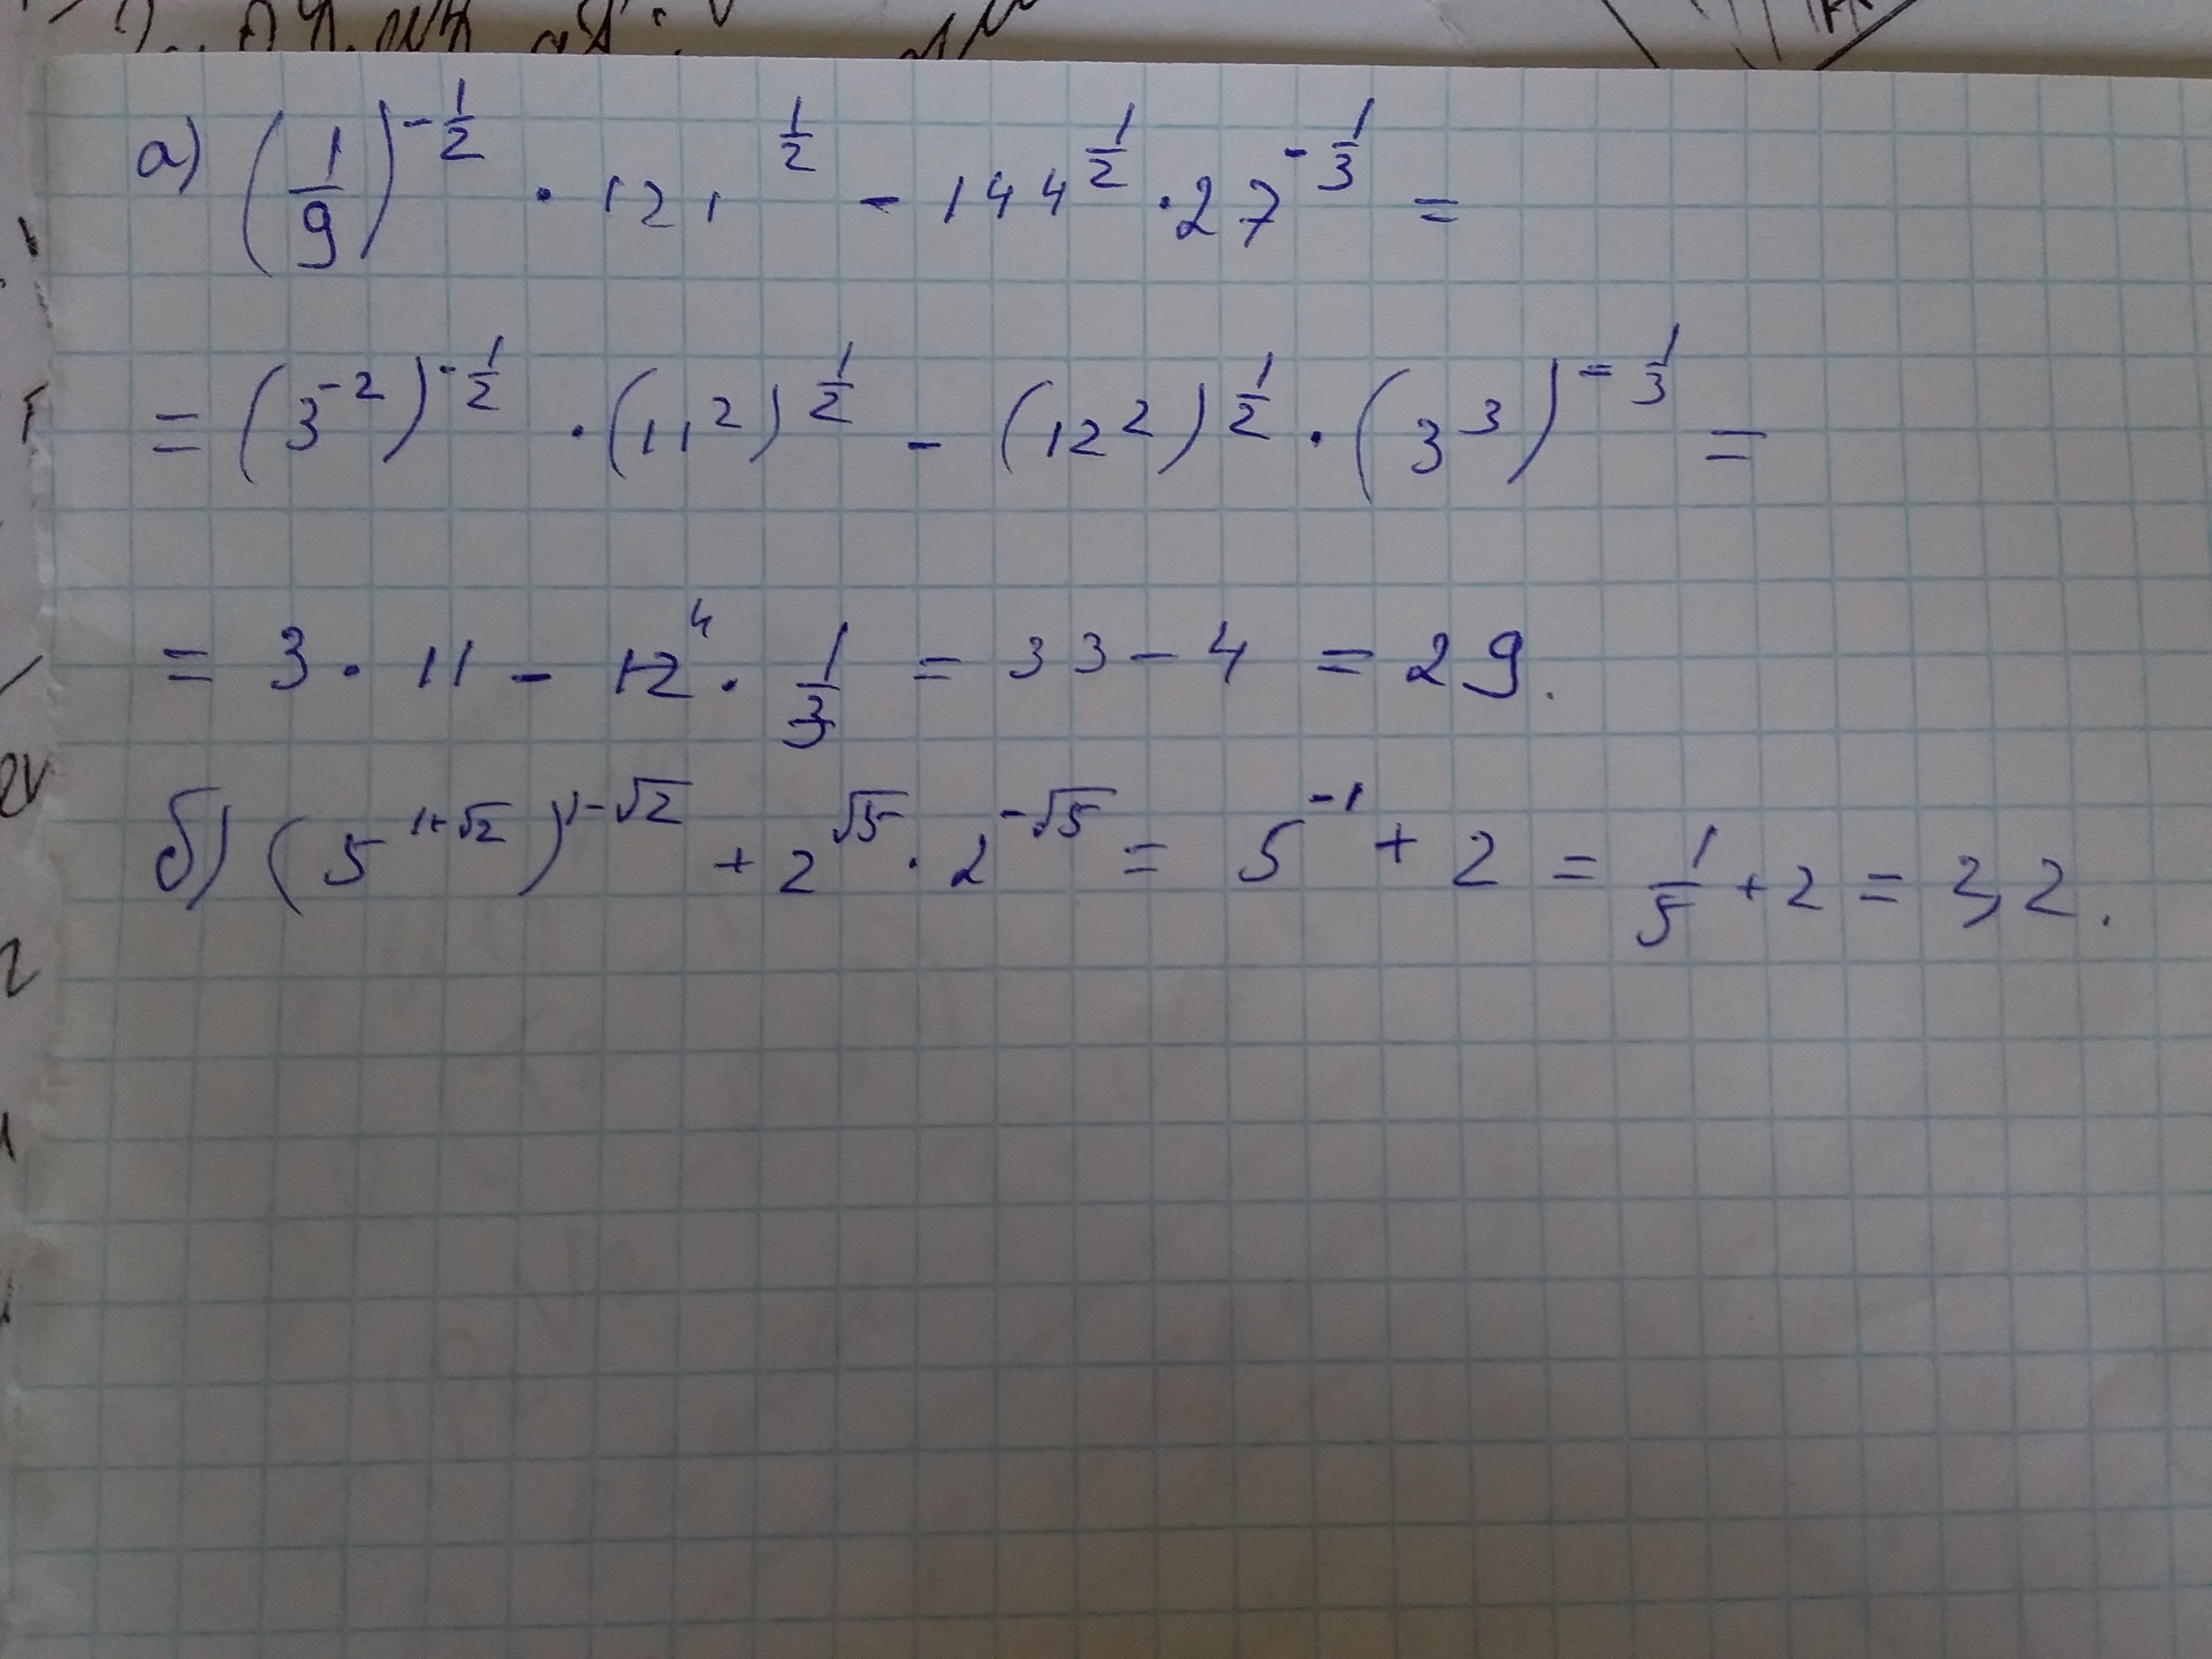 а) (1/9)^(-1/2) · 121^(1/2) - 144^(1/2) · 27^(-1/3) =
= (3^(-2))^(-1/2) · (11^2)^(1/2) - (12^2)^(1/2) · (3^3)^(-1/3) =
= 3 · 11 - 12^4 · 1/3 = 33 - 4 = 29.
б) (5^(1+√2))^(1-√2) + 2^(√5) · 2^(-√5) = 5^(-1) + 2 = 1/5 + 2 = 2,2.